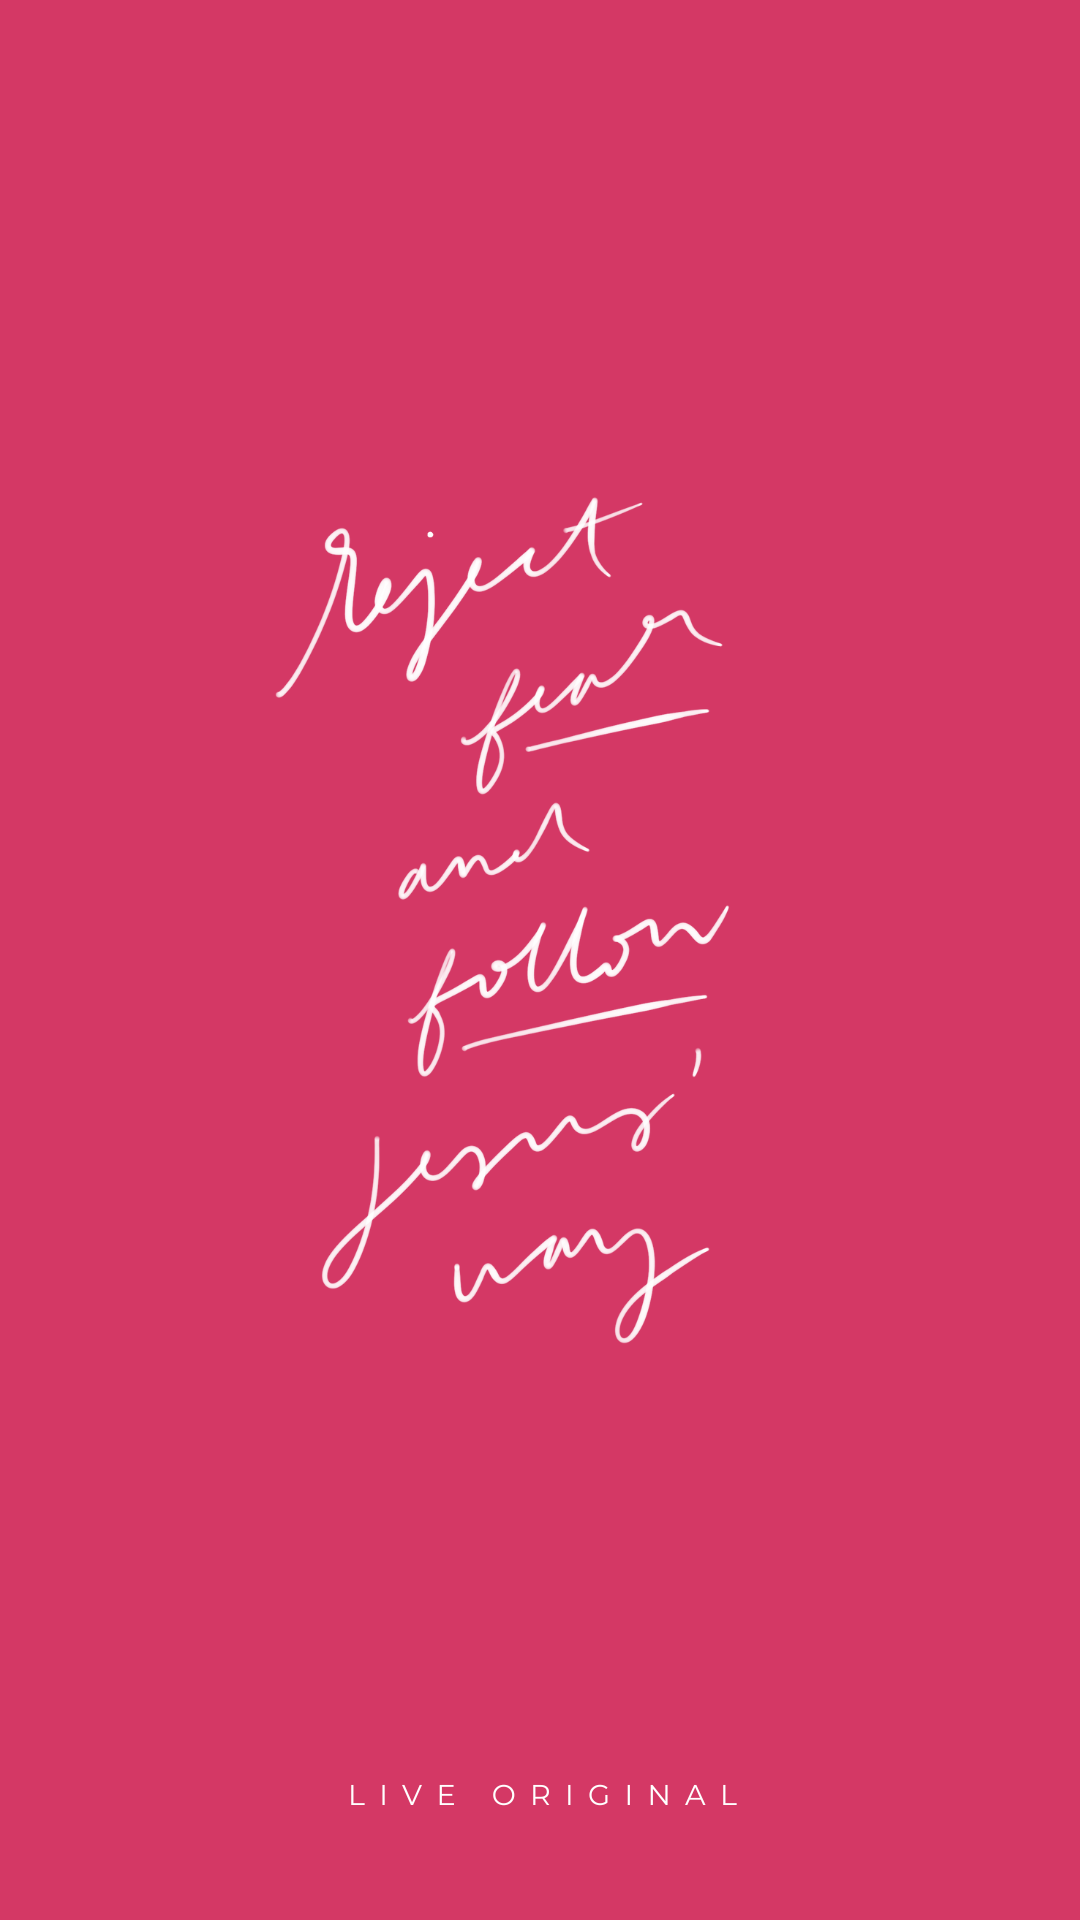 reject
fear
and
follow
Jesus'
way
LIVE ORIGINAL